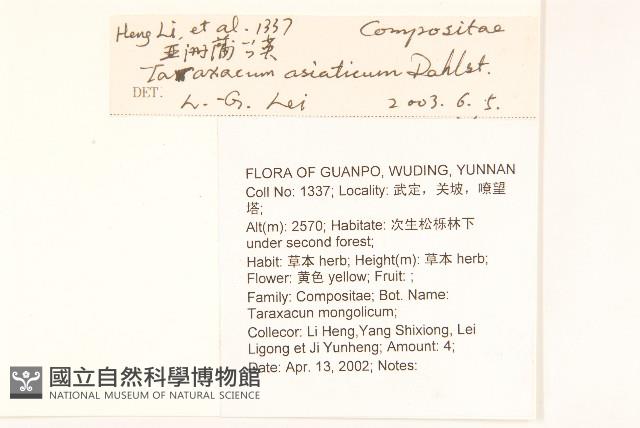 Heng Li, et al. 1337 Compositae
亚洲蒲公英
Taraxacum asiaticum Dahlst.
DET. L.-G. Lei 2003.6.5.
FLORA OF GUANPO, WUDING, YUNNAN
Coll No: 1337; Locality: 武定，关坡，嘹望
塔;
Alt(m): 2570; Habitate: 次生松栎林下
under second forest;
Habit: 草本 herb; Height(m): 草本 herb;
Flower: 黄色 yellow; Fruit: ;
Family: Compositae; Bot. Name:
Taraxacun mongolicum;
Collecor: Li Heng,Yang Shixiong, Lei
Ligong et Ji Yunheng; Amount: 4;
Date: Apr. 13, 2002; Notes:
國立自然科學博物館
NATIONAL MUSEUM OF NATURAL SCIENCE